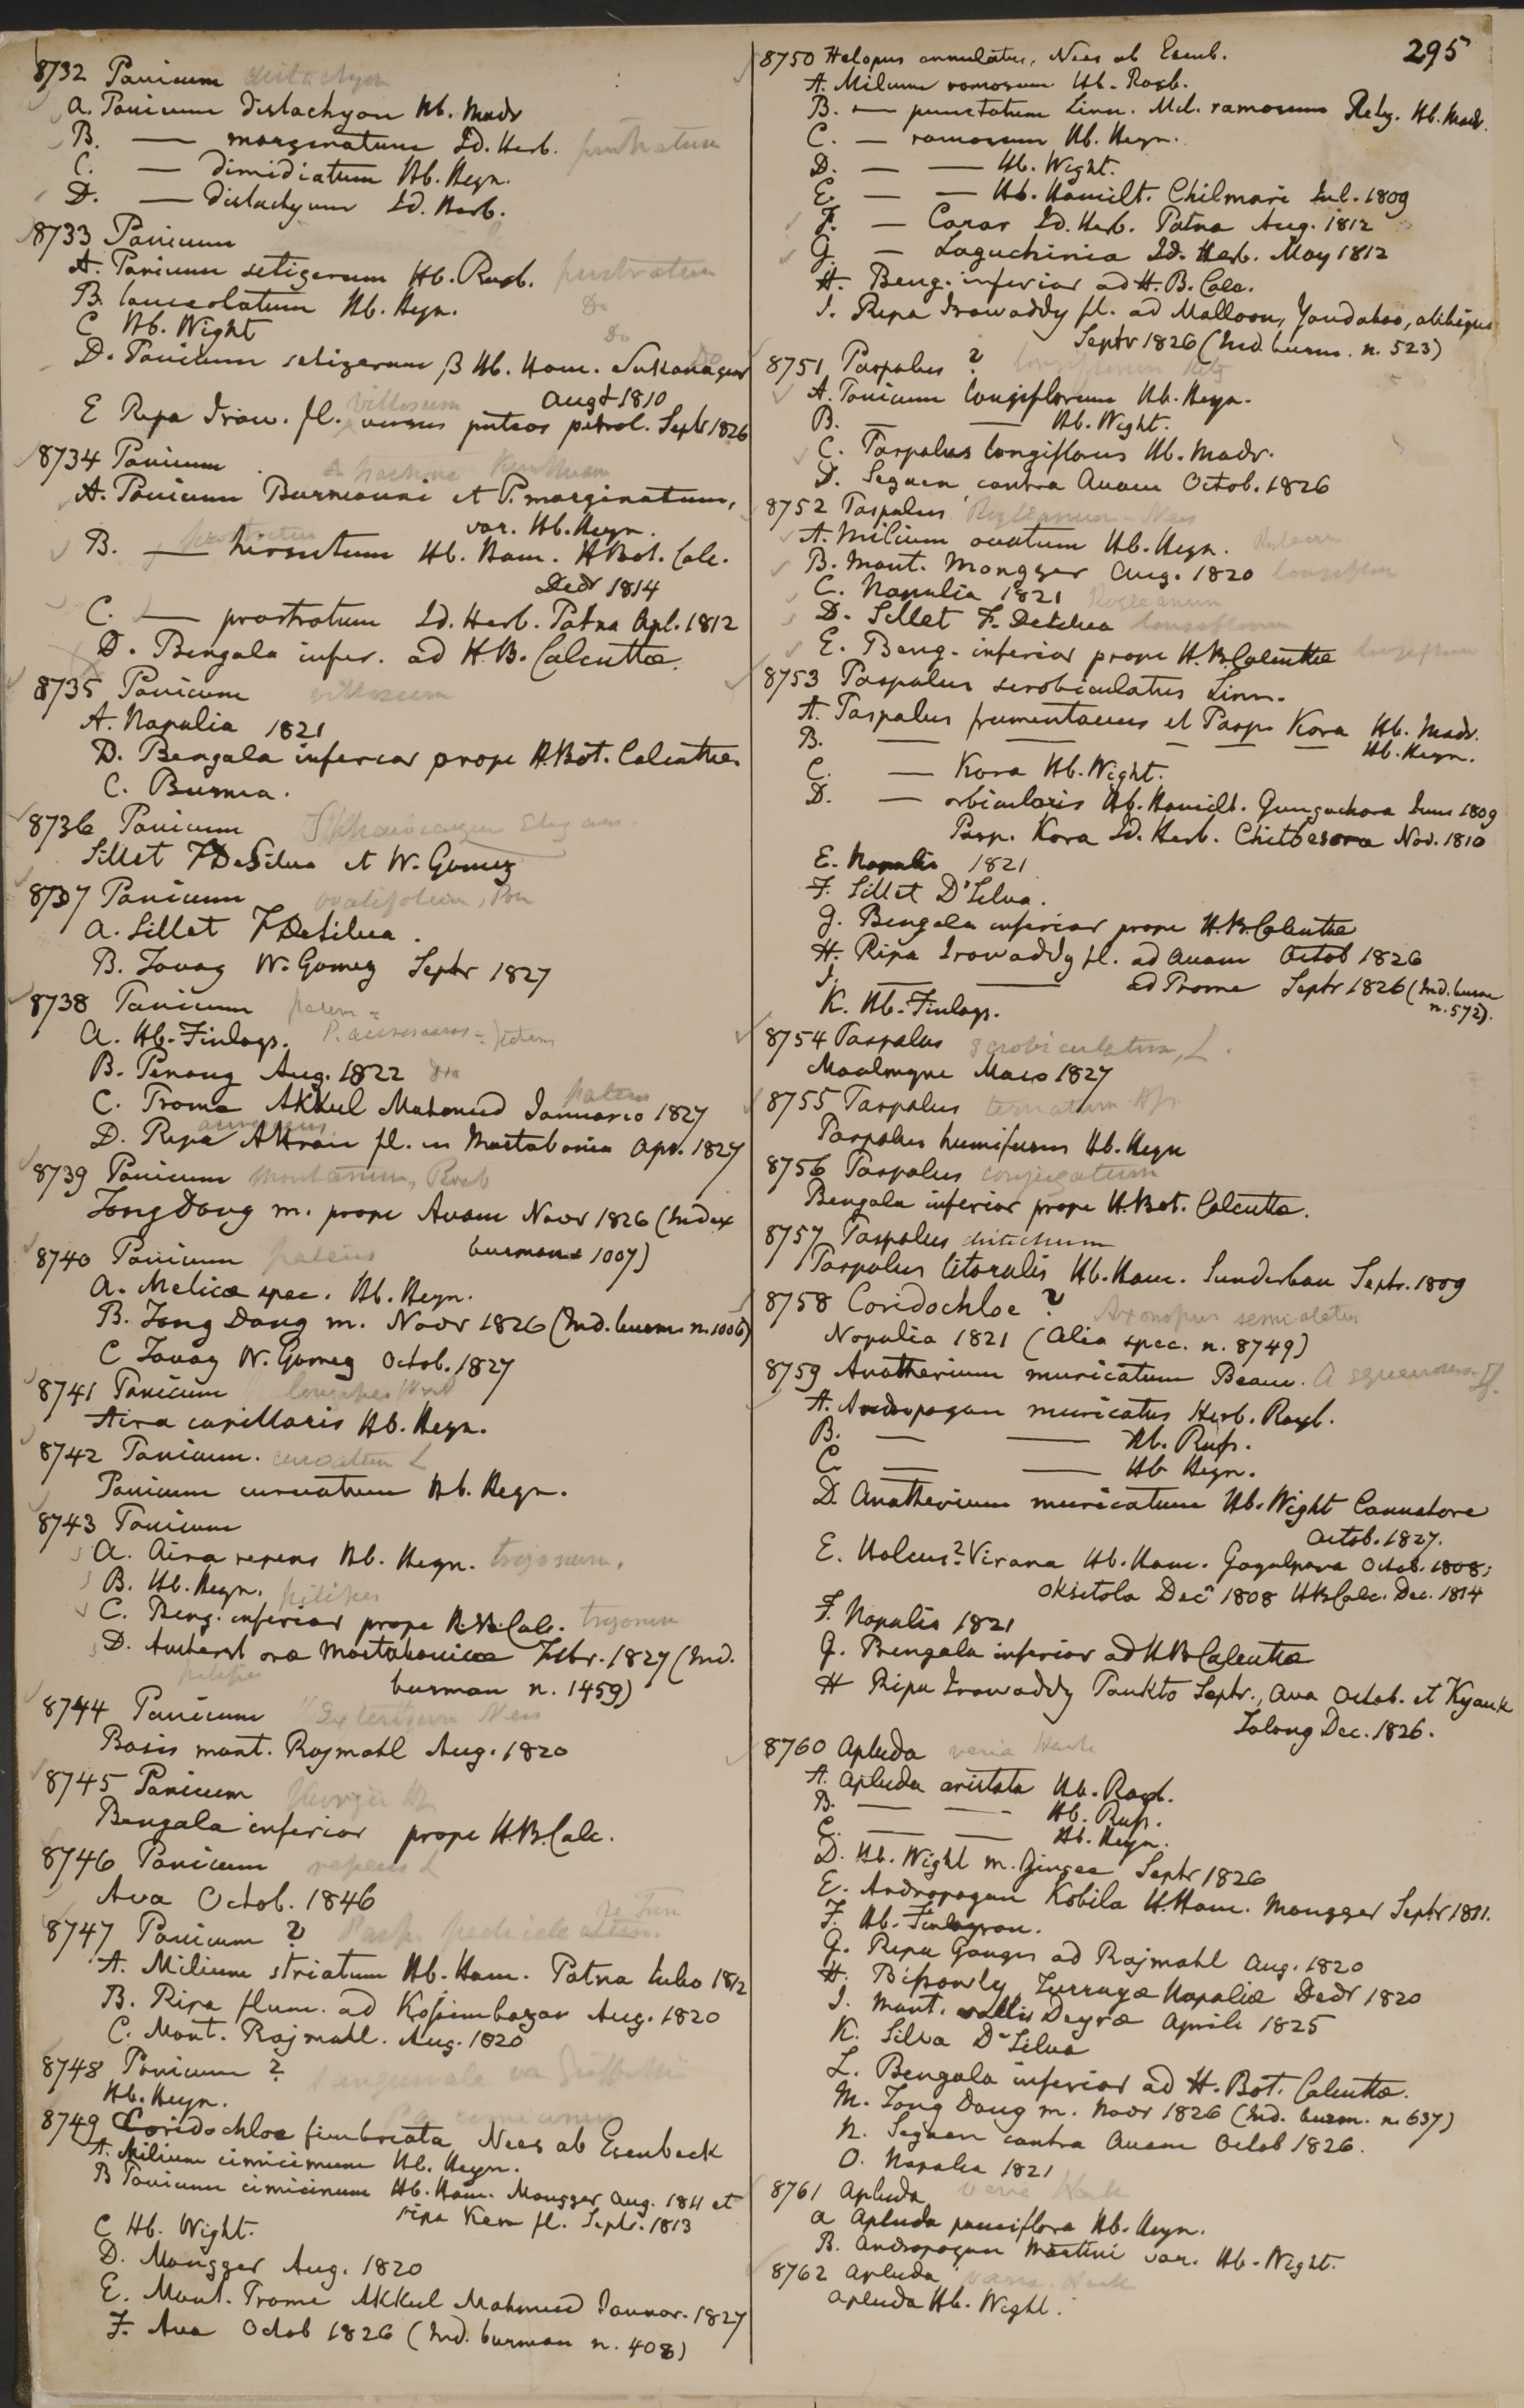 295
8732 Panicum distachyon
A. Panicum distachyon Hb. Madr
B. — marginatum Id. Herb. prostratum
C. — dimidiatum Hb. Heyn.
D. — distachyum Id. Herb.
8733 Panicum
A. Panicum setigerum Hb. Roxb. prostratum
B. lanceolatum Hb. Heyn. Do
C Hb. Wight Do
D. Panicum setigerum β Hb. Ham. Sukanagur Do
Augt 1810
E Ripa Iraw. fl. versus puteos petrol. Septr 1826
villosum
8734 Panicum
A. Panicum Burmanni et P. marginatum,
var. Hb. Heyn.
B. — hirsutum Hb. Ham. H Bot. Calc.
Decr 1814
C. — prostratum Id. Herb. Patna Apl. 1812
D. Bengala infer. ad H.B. Calcuttae.
8735 Panicum villosum
A. Napalia 1821
D. Bengala inferior prope H. Bot. Calcuttae.
C. Burma.
8736 Panicum
Sillet F DeSilva et W. Gomez
8737 Panicum ovalifolium, Poir
A. Sillet F DeSilva.
B. Tavoy W. Gomez Septr 1827
8738 Panicum patens =
A. Hb. Finlays.
B. Penang Aug. 1822
C. Prome Akkul Mahmud Januario 1827
patens
D. Ripa Attran fl. in Martabania Apr. 1827
8739 Panicum montanum, Roxb
Tong Dong m. prope Avam Novr 1826 (Index
burman 1007)
8740 Panicum patens
A. Melicae spec. Hb. Heyn.
B. Tong Dong m. Novr 1826 (Ind. burm. n. 1006)
C Tavoy W. Gomez Octob. 1827
8741 Panicum longipes
Aira capillaris Hb. Heyn.
8742 Panicum. curvatum L
Panicum curvatum Hb. Heyn.
8743 Panicum
A. Aira repens Hb. Heyn. trigonum.
B. Hb. Heyn. pilipes
C. Beng. inferior prope H.B. Calc. trigonum
D. Amherst orae Martabanicae Febr. 1827 (Ind.
pilipes
burman n. 1459)
8744 Panicum
Basis mont. Rajmahl Aug. 1820
8745 Panicum
Bengala inferior prope H.B. Calc.
8746 Panicum repens L
Ava Octob. 1846
8747 Panicum ?
A. Milium striatum Hb. Ham. Patna Julio 1812
B. Ripa flum. ad Kossimbazar Aug. 1820
C. Mont. Rajmahl. Aug. 1820
8748 Panicum ?
Hb. Heyn.
8749 Coridochloa fimbriata Nees ab Esenbeck
A. Milium cimicinum Hb. Heyn.
B Panicum cimicinum Hb. Ham. Mongger Aug. 1811 et
ripa Kem fl. Septr. 1813
C Hb. Wight.
D. Mongger Aug. 1820
E. Mont. Prome Akkul Mahmud Januar. 1827
F. Ava Octob 1826 (Ind. burman n. 408)
8750 Helopus annulatus, Nees ab Esenb.
A. Milium ramosum Hb. Roxb.
B. — punctatum Linn. Mil. ramosum Retz. Hb. Madr.
C. — ramosum Hb. Heyn.
D. — — Hb. Wight.
E. — — Hb. Hamilt. Chilmari Jul. 1809
F. — Carar Id. Herb. Patna Aug. 1812
G. — Laguchinia Id. Herb. May 1812
H. Beng. inferior ad H.B. Calc.
I. Ripa Irawaddy fl. ad Malloon, Yandaboo, alibique
Septr 1826 (Ind. burm. n. 523)
8751 Paspalus ? longiflorum Retz
A. Panicum longiflorum Hb. Heyn.
B. — — Hb. Wight.
C. Paspalus longiflorus Hb. Madr.
D. Segaen contra Avam Octob. 1826
8752 Paspalus Royleanum - Nees
A. Milium ovatum Hb. Heyn.
B. Mont. Mongger Aug. 1820 longiflorum
C. Napalia 1821 Royleanum
D. Sillet F. DeSilva longiflorum
E. Beng. inferior prope H.B. Calcuttae longiflorum
8753 Paspalus scrobiculatus Linn.
A. Paspalus frumentaceus et Pasp. Kora Hb. Madr.
B. — — — — Hb. Heyn.
C. — Kora Hb. Wight.
D. — orbicularis Hb. Hamilt. Gungachora Jun 1809
Pasp. Kora Id. Herb. Chitbesora Nov. 1810
E. Napalia 1821
F. Sillet D'Silva.
G. Bengala inferior prope H.B. Calcuttae
H. Ripa Irawaddy fl. ad Avam Octob 1826
I. — — ad Prome Septr 1826 (Ind. burm
n. 572).
K. Hb. Finlays.
8754 Paspalus scrobiculatum, L.
Moalmyne Maio 1827
8755 Paspalus
Paspalus humifusus Hb. Heyn
8756 Paspalus conjugatum
Bengala inferior prope H. Bot. Calcutta.
8757 Paspalus distichum
Paspalus litoralis Hb. Ham. Sunderban Septr. 1809
8758 Coridochloe ? Axonopus semialatus
Napalia 1821 (Alia spec. n. 8749)
8759 Anatherium muricatum Beauv. A squarrosus
A. Andropogon muricatus Herb. Roxb.
B. — — Hb. Russ.
C. — — Hb Heyn.
D. Anatherium muricatum Hb. Wight Cannatore
Octob. 1827.
E. Holcus? Virana Hb. Ham. Goyalpara Octob. 1808;
Oksitola Decr 1808 H B Calc. Dec. 1814
F. Napalia 1821
G. Bengala inferior ad H B Calcuttae
H Ripa Irawaddy Paukto Septr., Ava Octob. et Kyauk
Talong Dec. 1826.
8760 Apluda varia Hack
A. Apluda aristata Hb. Roxb.
B. — — Hb. Russ.
C. — — Hb. Heyn.
D. Hb. Wight m. Gingee Septr 1826
E. Andropogon Kobila H. Ham. Mongger Septr 1811.
F. Hb. Finlayson.
G. Ripa Ganges ad Rajmahl Aug. 1820
H. Bissowly Turraye Napaliae Decr 1820
I. Mont. vallis Deyrae Aprili 1825
K. Silva D'Silva
L. Bengala inferior ad H. Bot. Calcuttae.
M. Tong Dong m. Novr 1826 (Ind. burm. n. 637)
N. Segaen contra Avam Octob 1826.
O. Napalia 1821
8761 Apluda varia Hack
A Apluda pauciflora Hb. Heyn.
B. Andropogon Martini var. Hb. Wight.
8762 Apluda varia. Hack
Apluda Hb. Wight.